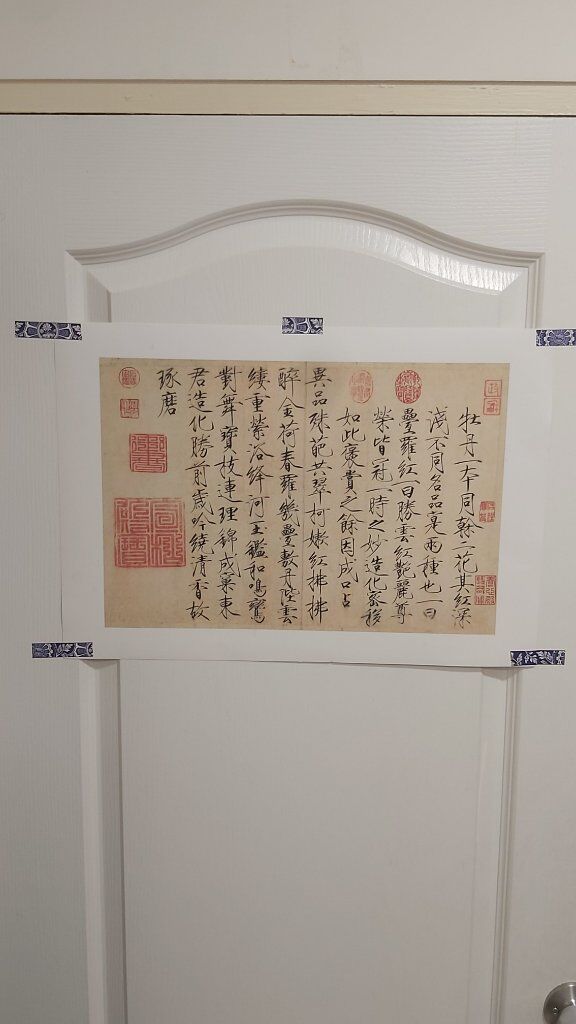 牡丹一本同榦二花其紅深
淺不同名品寔兩種也一曰
疊羅紅一曰勝雲紅艷麗尊
榮皆冠一時之妙造化密移
如此褒賞之餘因成口占
異品殊葩共翠柯嫩紅拂拂
醉金荷春羅幾疊敷丹陛雲
縷重縈浴絳河玉鑑和鳴鸞
對舞寶枝連理錦成窠東
君造化勝前歲吟繞清香故
琢磨